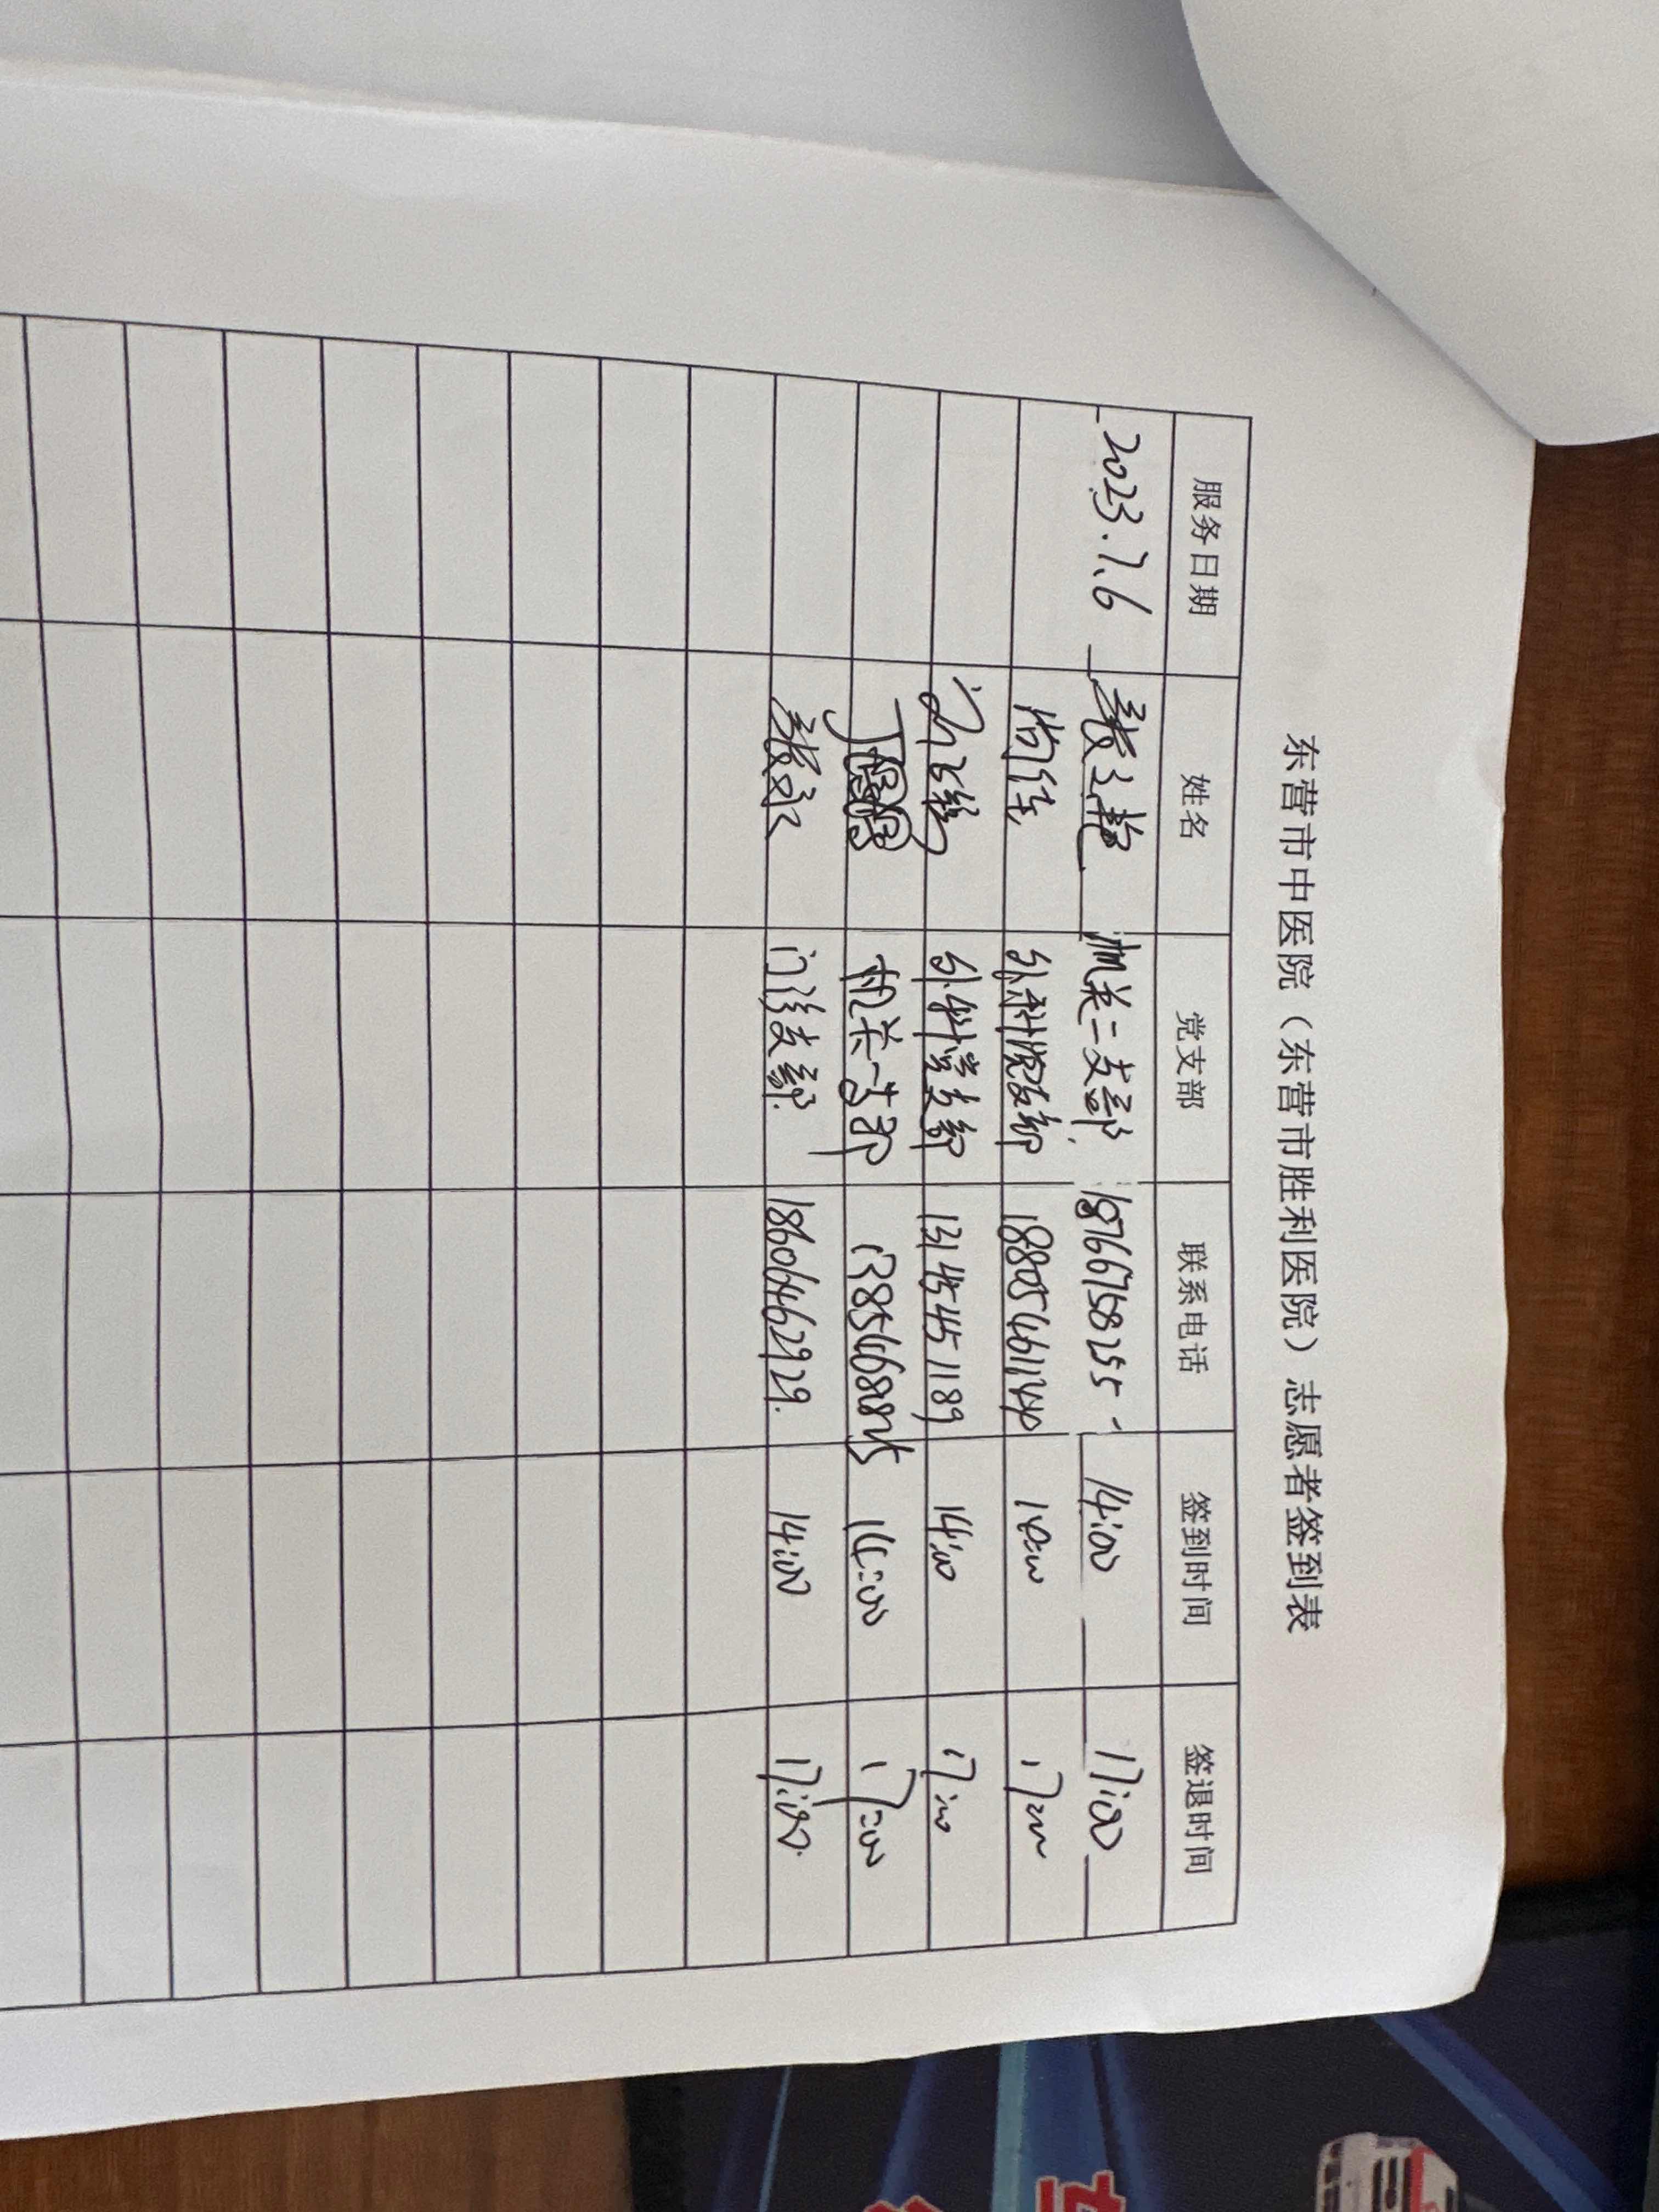 东营市中医院（东营市胜利医院）志愿者签到表
服务日期 姓名 党支部 联系电话 签到时间 签退时间
2023.7.6 张文艳 机关二支部 18766758255 14:00 17:00
尚佳 外科党支部 18805461140 14:00 17:00
外科党支部 13145451189 14:00 17:00
丁 机关一支部 14:00 17:00
张永 门诊支部 18606462929 14:00 17:00